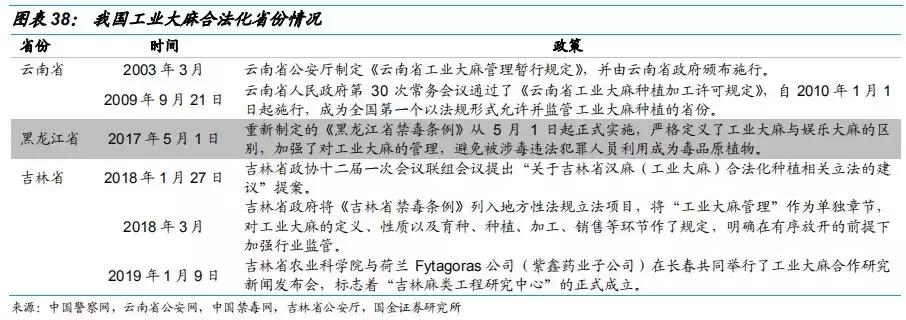 图表 38： 我国工业大麻合法化省份情况
省份 时间 政策
云南省 2003 年 3 月 云南省公安厅制定《云南省工业大麻管理暂行规定》，并由云南省政府颁布施行。
云南省人民政府第 30 次常务会议通过了《云南省工业大麻种植加工许可规定》，自 2010 年 1 月 1
2009 年 9 月 21 日
日起施行，成为全国第一个以法规形式允许并监管工业大麻种植的省份。
重新制定的《黑龙江省禁毒条例》从 5 月 1 日起正式实施，严格定义了工业大麻与娱乐大麻的区
黑龙江省 2017 年 5 月 1 日
别，加强了对工业大麻的管理，避免被涉毒违法犯罪人员利用成为毒品原植物。
吉林省政协十二届一次会议联组会议提出“关于吉林省汉麻（工业大麻）合法化种植相关立法的建
吉林省 2018 年 1 月 27 日
议”提案。
吉林省政府将《吉林省禁毒条例》列入地方性法规立法项目，将“工业大麻管理”作为单独章节，
2018 年 3 月 对工业大麻的定义、性质以及育种、种植、加工、销售等环节作了规定，明确在有序放开的前提下
加强行业监管。
吉林省农业科学院与荷兰 Fytagoras 公司（紫鑫药业子公司）在长春共同举行了工业大麻合作研究
2019 年 1 月 9 日
新闻发布会，标志着“吉林麻类工程研究中心”的正式成立。
来源：中国警察网，云南省公安网，中国禁毒网，吉林省公安厅，国金证券研究所